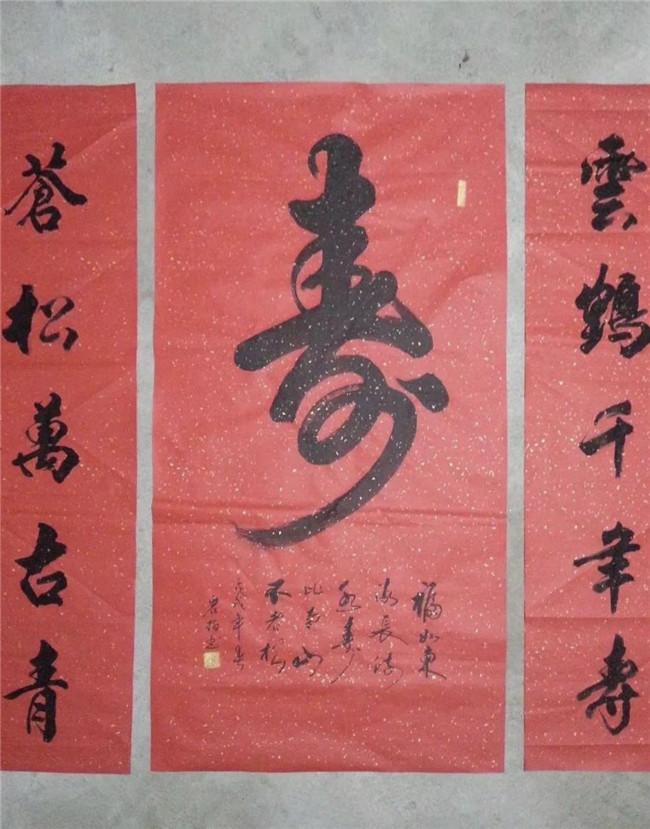 雲鶴千年壽
寿
福如東
海長流
水壽
比南山
不老松
戊戌年春
蒼松萬古青